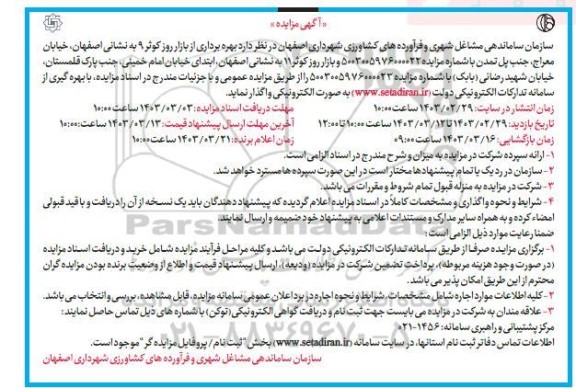 « آگهی مزایده »
سازمان ساماندهی مشاغل شهری و فرآورده های کشاورزی شهرداری اصفهان در نظر دارد بهره برداری از بازار روز کوثر ۹ به نشانی اصفهان، خیابان
معراج، جنب پل تمدن با شماره مزایده ۵۰۰۳۰۰۵۹۷۶۰۰۰۰۲۲ و بازار روز کوثر ۱۱ به نشانی اصفهان، ابتدای خیابان امام خمینی، جنب پارک قلمستان،
خیابان شهید رضائی (بابک) با شماره مزایده ۵۰۰۳۰۰۵۹۷۶۰۰۰۰۲۳ را از طریق مزایده عمومی و با جزئیات مندرج در اسناد مزایده، با بهره گیری از
سامانه تدارکات الکترونیکی دولت (www.setadiran.ir) به صورت الکترونیکی واگذار نماید.
زمان انتشار در سایت: ۱۴۰۳/۰۲/۲۹ ساعت ۱۰:۰۰ مهلت دریافت اسناد مزایده: ۱۴۰۳/۰۳/۰۳ ساعت ۱۰:۰۰
تاریخ بازدید: ۱۴۰۳/۰۲/۲۹ تا ۱۴۰۳/۰۳/۱۲ ساعت ۱۰:۰۰ تا ۱۲:۰۰ آخرین مهلت ارسال پیشنهاد قیمت: ۱۴۰۳/۰۳/۱۳ ساعت ۱۰:۰۰
زمان بازگشایی: ۱۴۰۳/۰۳/۱۶ ساعت ۰۹:۰۰ زمان اعلام برنده: ۱۴۰۳/۰۳/۲۱ ساعت ۱۰:۰۰
۱- ارائه سپرده شرکت در مزایده به میزان و شرح مندرج در اسناد الزامی است.
۲- سازمان در رد یک یا تمام پیشنهادها مختار است در این صورت سپرده ها مسترد خواهد شد.
۳- شرکت در مزایده به منزله قبول تمام شروط و مقررات می باشد.
۴- شرایط و نحوه واگذاری و مشخصات کاملاً در اسناد مزایده اعلام گردیده که پیشنهاد دهندگان باید یک نسخه از آن را دریافت و با قید قبولی
امضاء کرده و به همراه سایر مدارک و مستندات اعلامی به پیشنهاد خود ضمیمه و ارسال نمایند.
ضمنا رعایت موارد ذیل الزامی است:
۱- برگزاری مزایده صرفا از طریق سامانه تدارکات الکترونیکی دولت می باشد و کلیه مراحل فرآیند مزایده شامل خرید و دریافت اسناد مزایده
(در صورت وجود هزینه مربوطه)، پرداخت تضمین شرکت در مزایده (ودیعه)، ارسال پیشنهاد قیمت و اطلاع از وضعیت برنده بودن مزایده گران
محترم از این طریق امکان پذیر می باشد.
۲- کلیه اطلاعات موارد اجاره شامل مشخصات، شرایط و نحوه اجاره در برد اعلان عمومی سامانه مزایده، قابل مشاهده، بررسی و انتخاب می باشد.
۳- علاقه مندان به شرکت در مزایده می بایست جهت ثبت نام و دریافت گواهی الکترونیکی (توکن) با شماره های ذیل تماس حاصل نمایند:
مرکز پشتیبانی و راهبری سامانه: ۱۴۵۶-۰۲۱
اطلاعات تماس دفاتر ثبت نام استانها، در سایت سامانه (www.setadiran.ir) بخش "ثبت نام / پروفایل مزایده گر" موجود است.
سازمان ساماندهی مشاغل شهری و فرآورده های کشاورزی شهرداری اصفهان